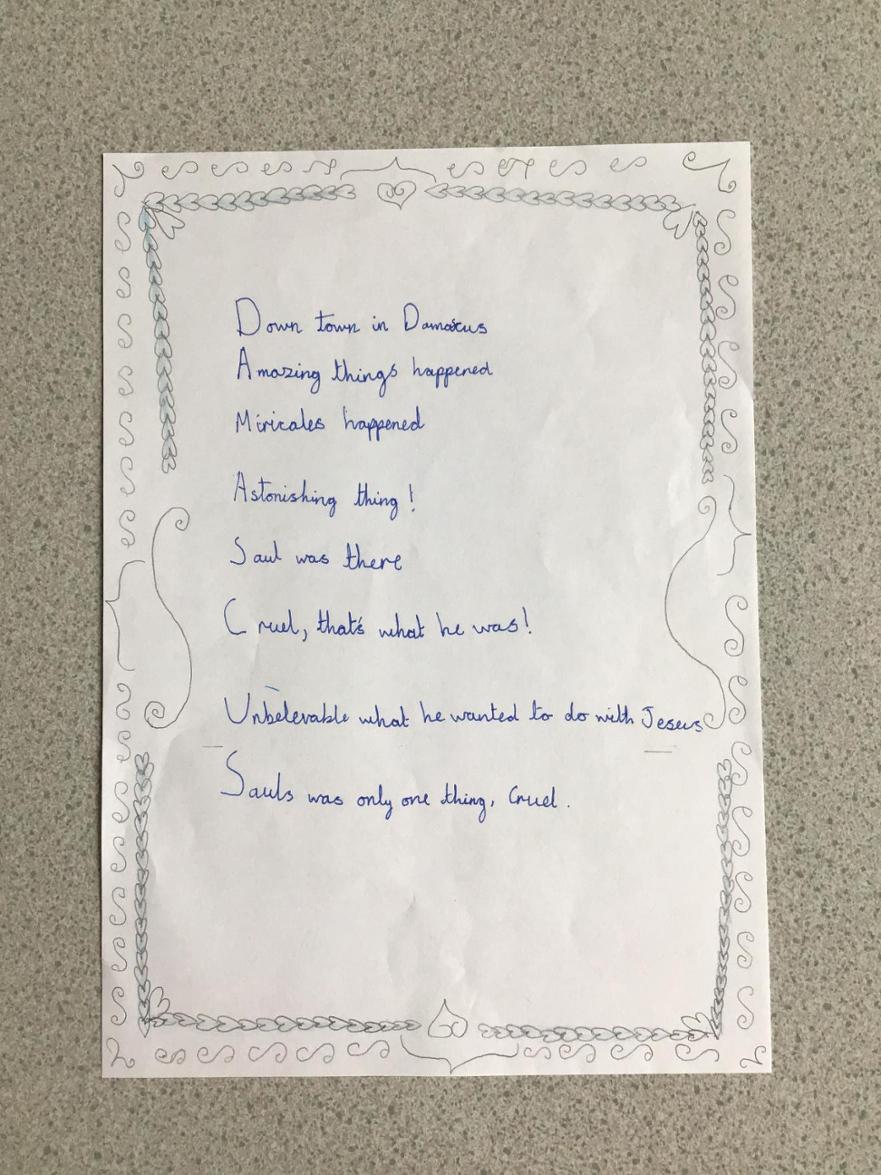 Down town in Damascus
Amazing things happened
Miricales happened
Astonishing thing!
Saul was there
Cruel, that's what he was!
Unbelevable what he wanted to do with Jesus
Sauls was only one thing, Cruel.